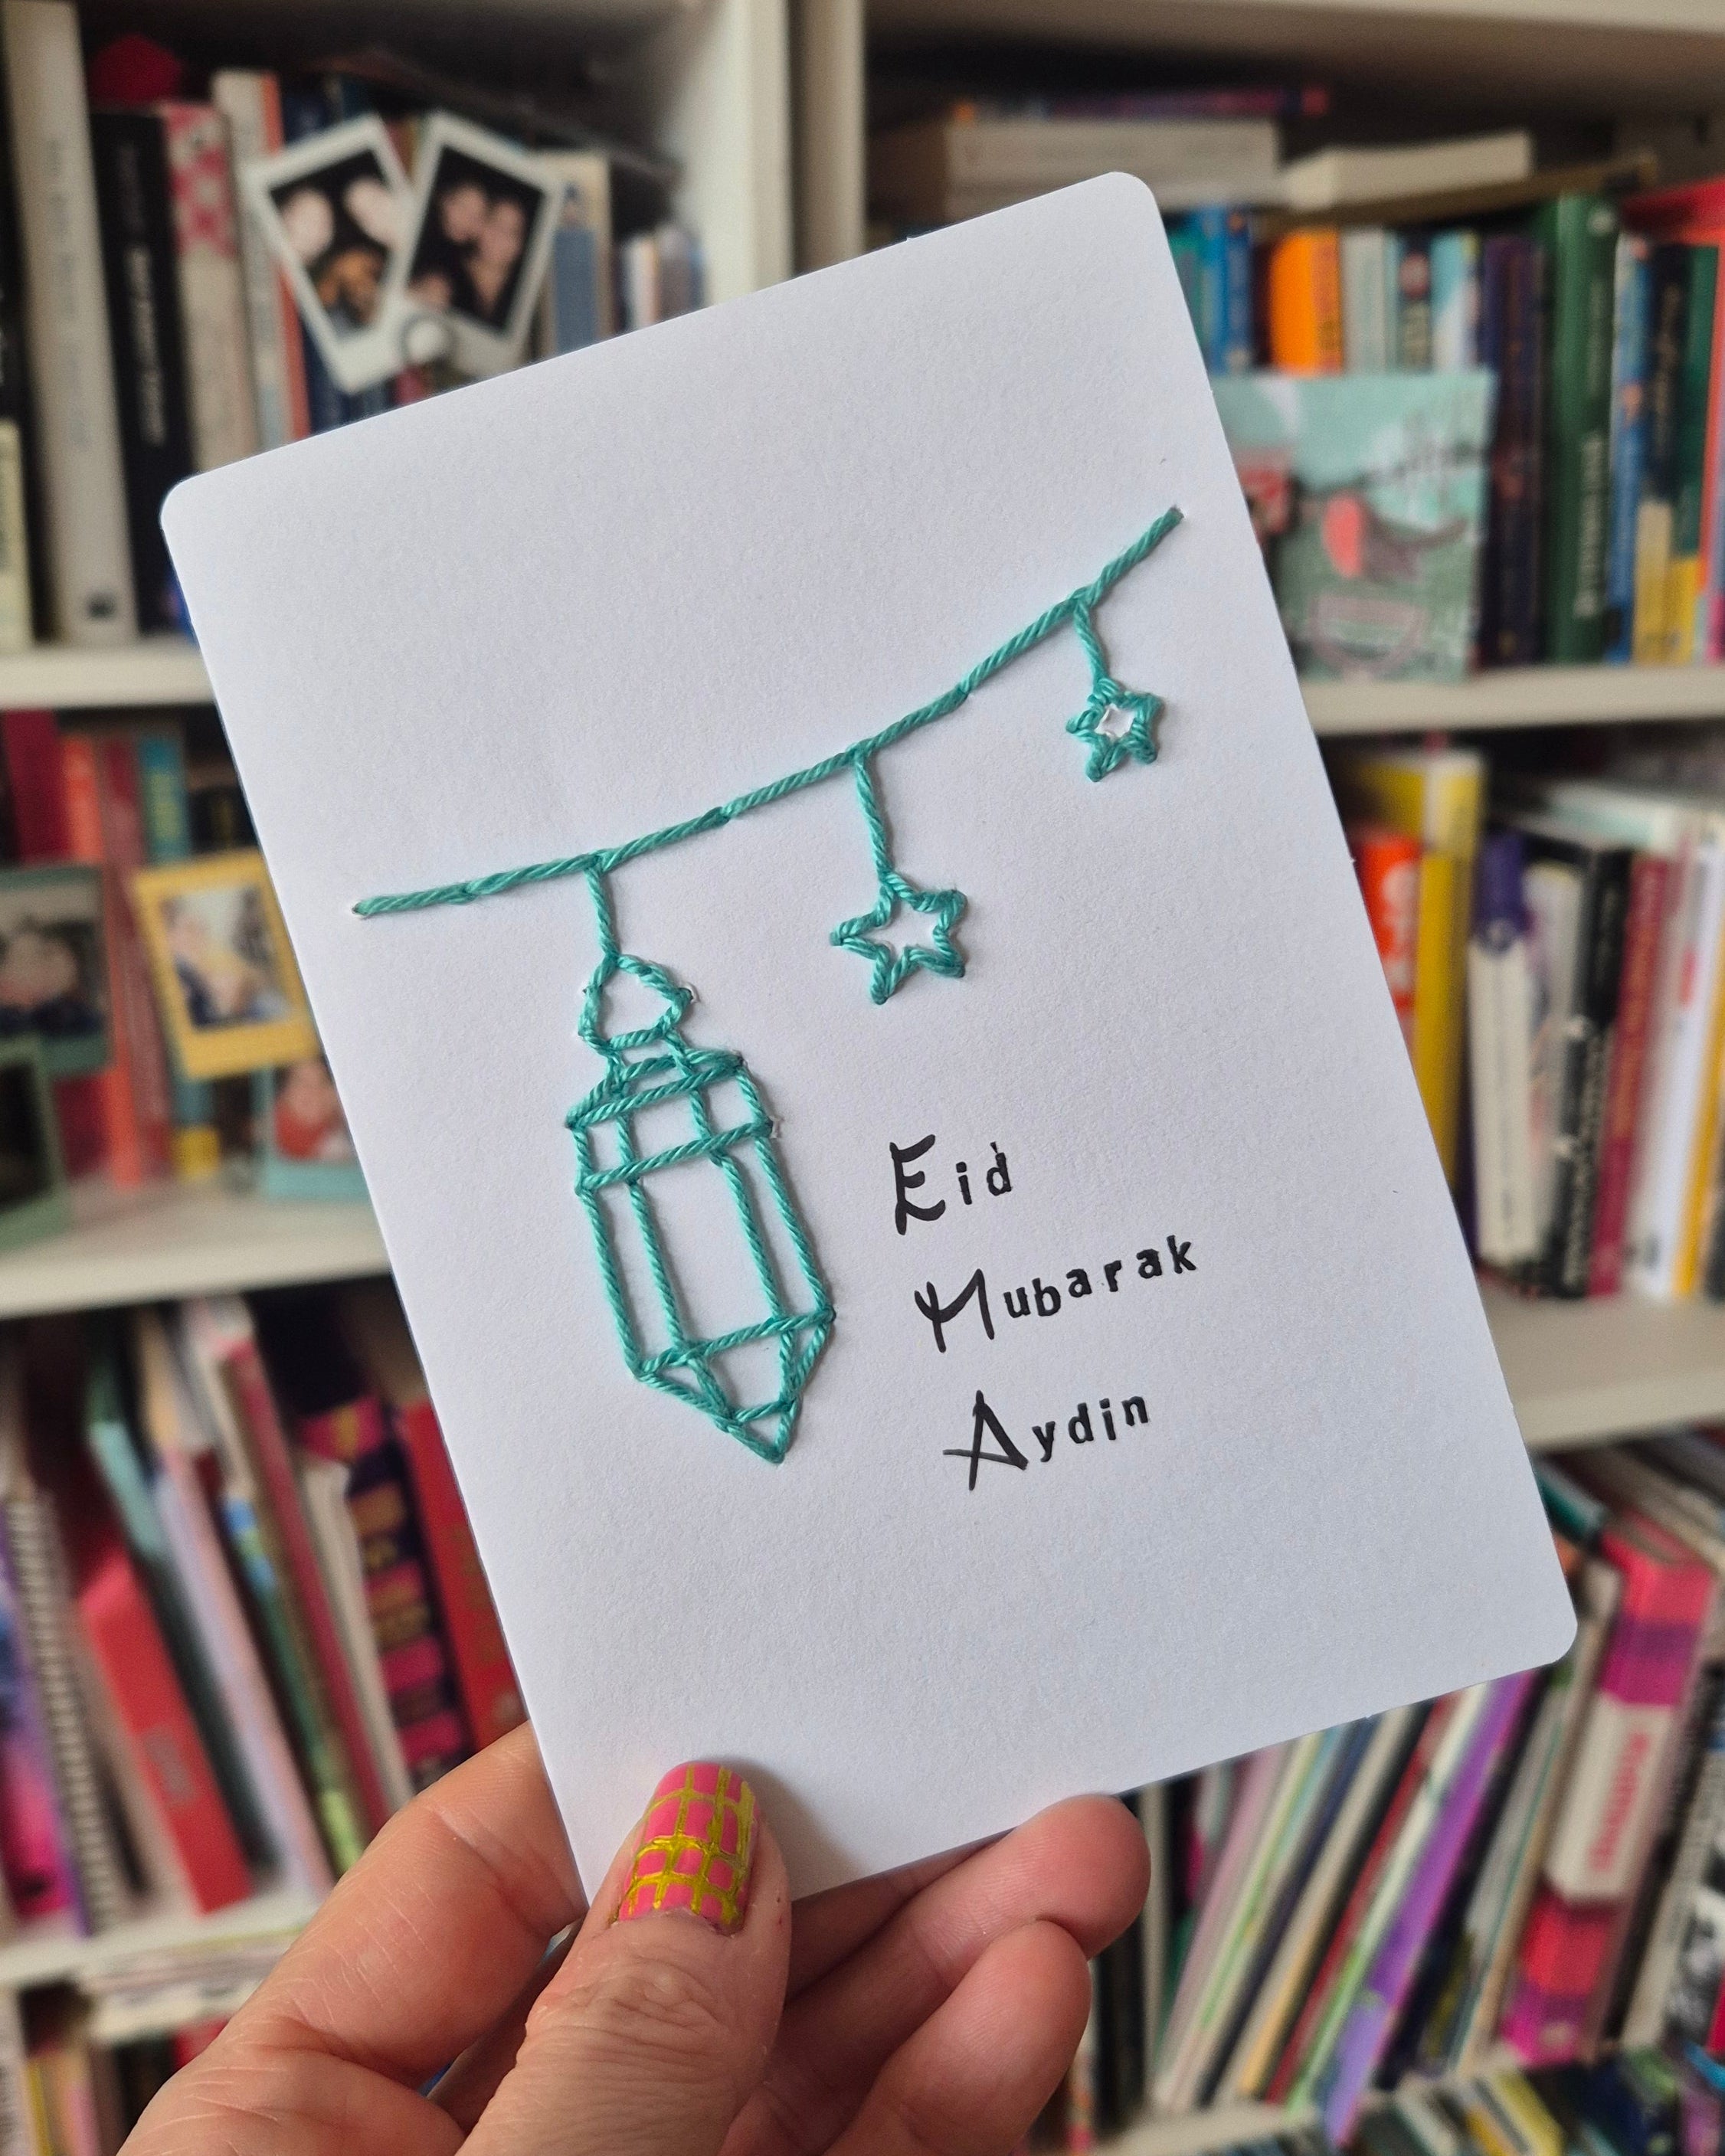 Eid
Mubarak
Aydin